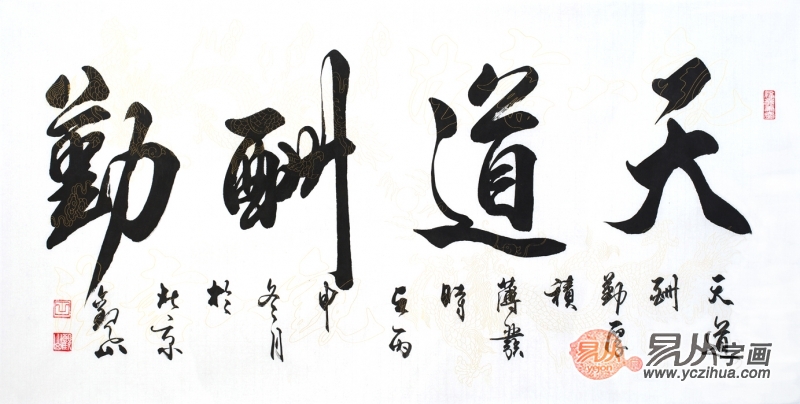 天道酬勤
天道
酬
勤厚
積
薄發
時
在丙
申
冬月
於
北京
易从
易从字画
www.yczihua.com